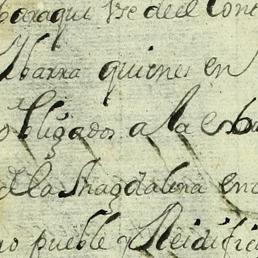 aqui se de el Cont
Ibarra quienes en
obligados a la
de la Magdalena en
no pueble Reidific